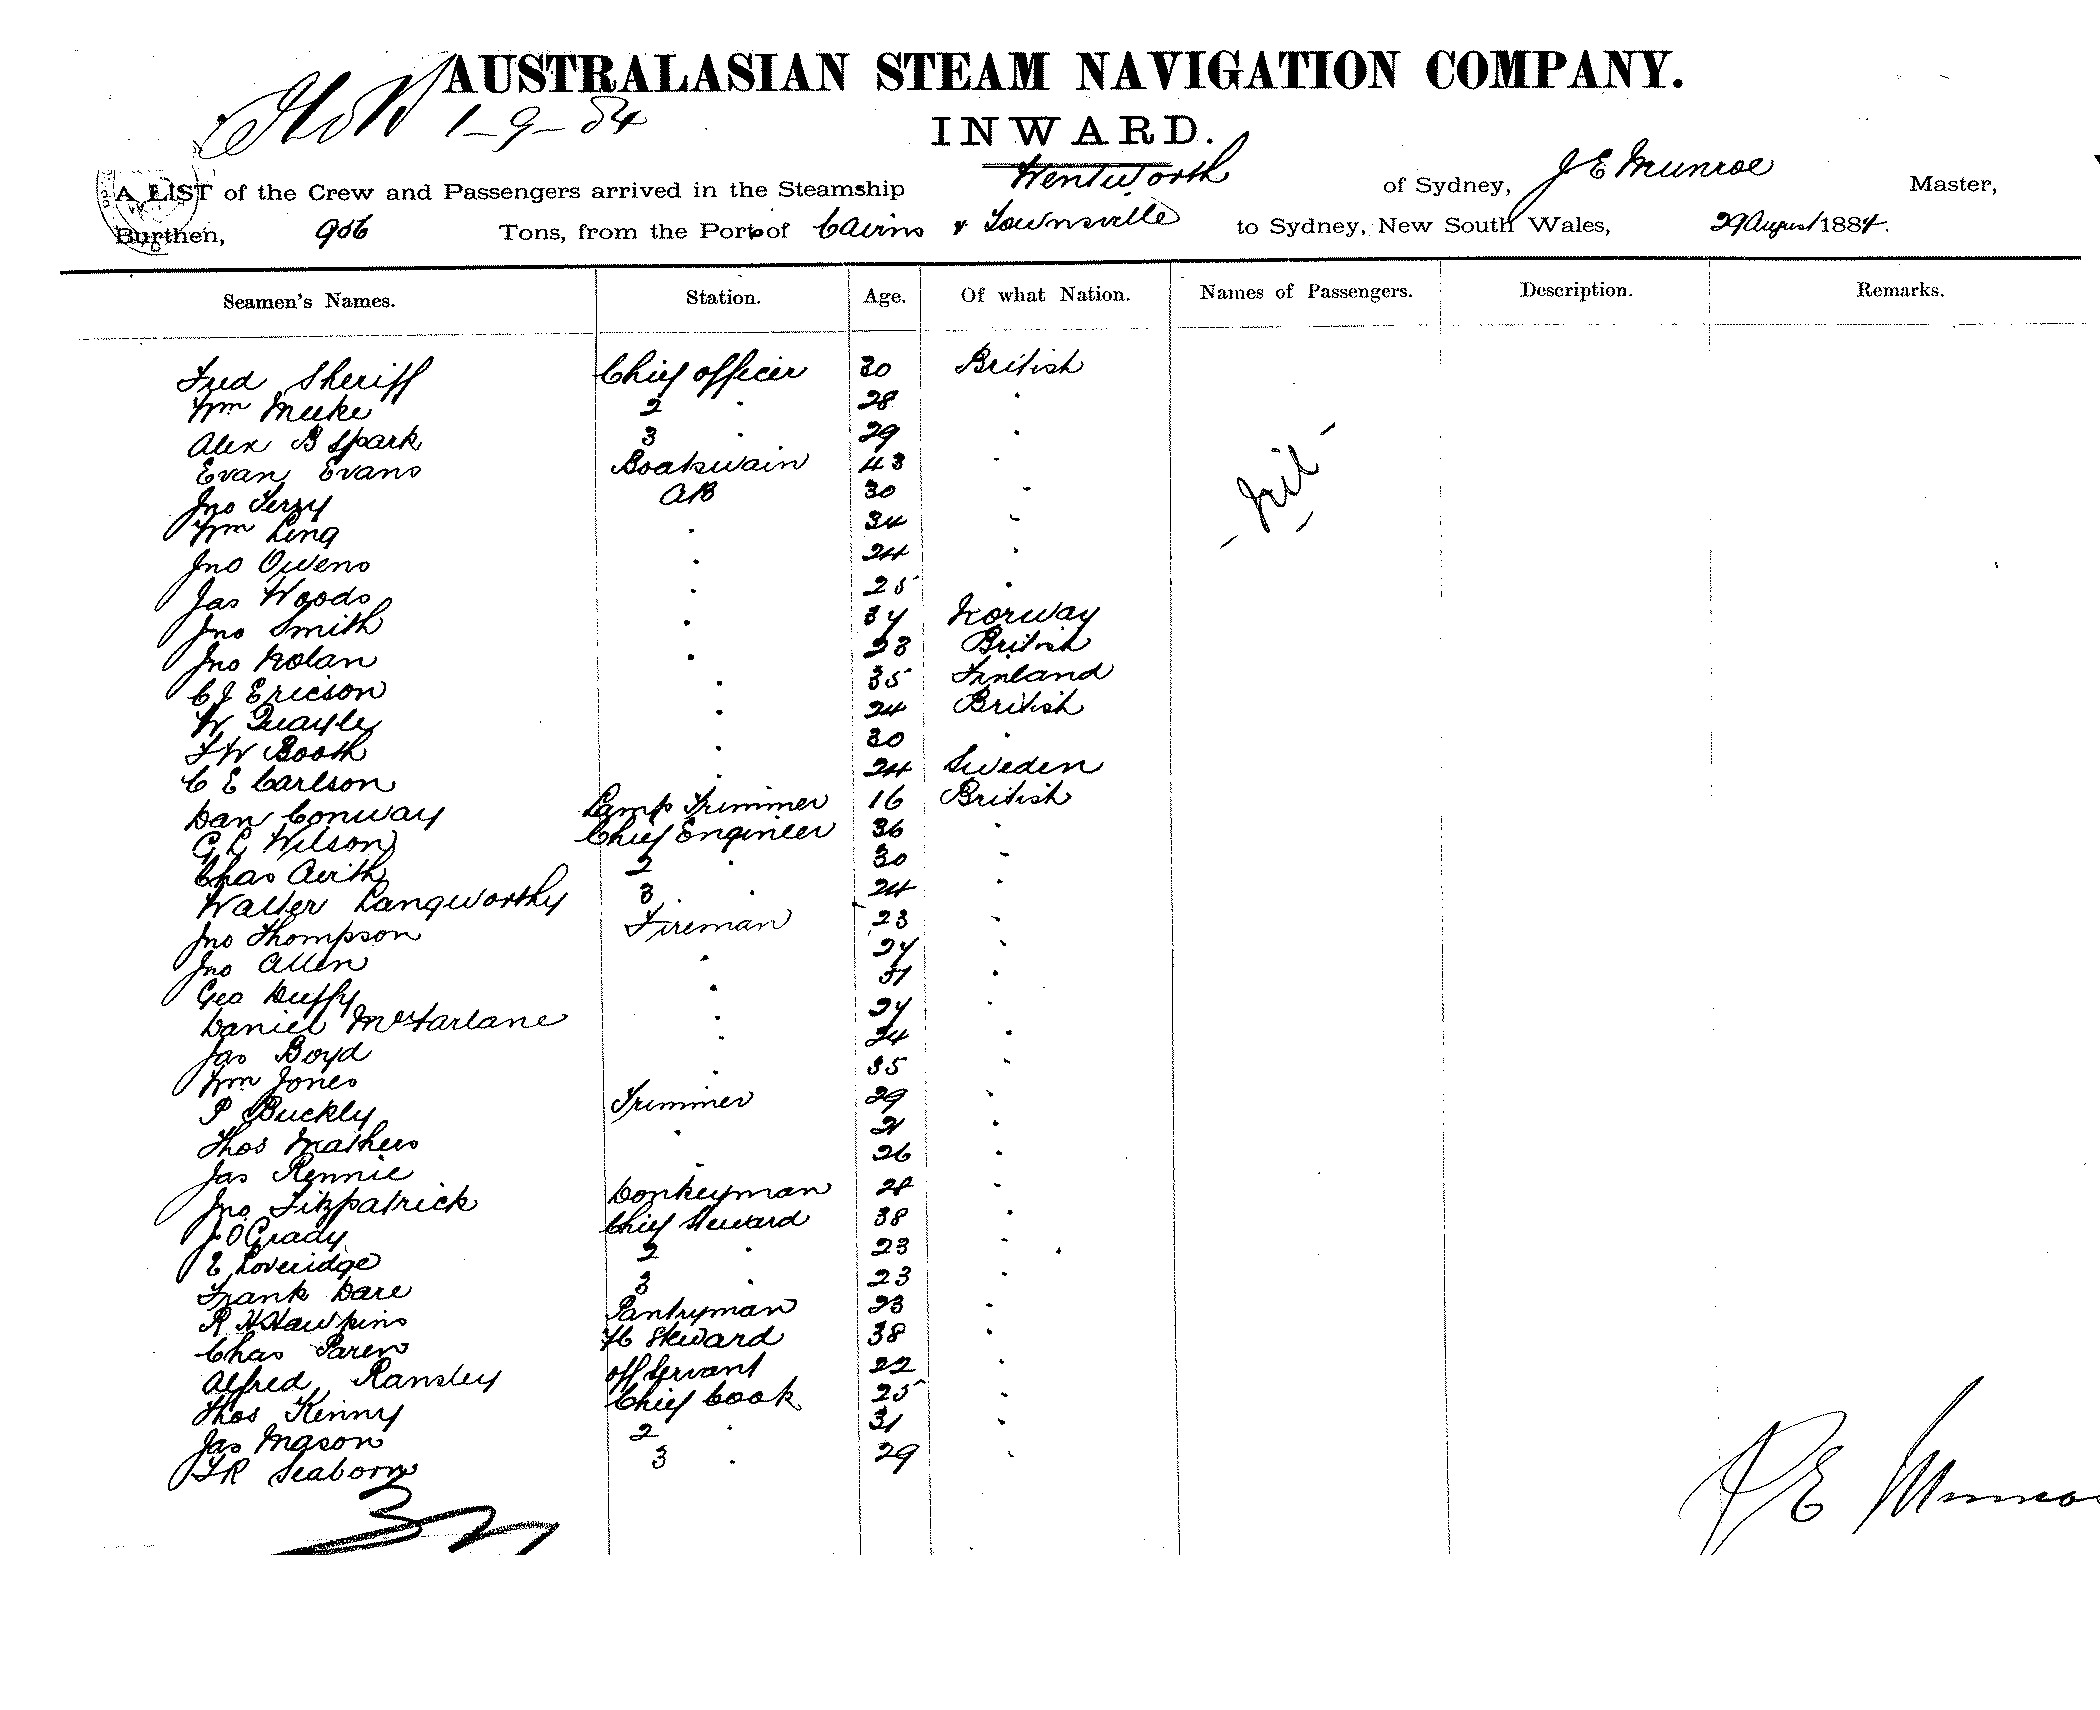 AUSTRALASIAN STEAM NAVIGATION COMPANY.
1-9-84
INWARD.
A LIST of the Crew and Passengers arrived in the Steamship Wentworth of Sydney, J E Munroe Master,
Burthen, 956 Tons, from the Port of Cairns & Townsville to Sydney, New South Wales, 29 August 1884.
Seamen's Names. Station. Age. Of what Nation. Names of Passengers. Description. Remarks.
Fred Sheriff Chief officer 30 British
Wm Meeke 2 " 28 "
Alex B Spark 3 " 29 "
Evan Evans Boatswain 43 "
Jno Terry AB 30 "
- Nil -
Wm Ling " 34 "
Jno Owens " 24 "
Jas Woods " 25 "
Jno Smith " 37 Norway
Jno Nolan " 23 British
C J Ericson " 35 Finland
W Quayle " 24 British
F W Booth " 30 "
C E Carlson " 24 Sweden
Dan Conway Lamp Trimmer 16 British
G L Wilson Chief Engineer 36 "
Chas Airth 2 " 30 "
Walter Langworthy 3 " 24 "
Jno Thompson Fireman 23 "
Jno Allen " 27 "
Geo Duffy " 31 "
Daniel McFarlane " 27 "
Jas Boyd " 24 "
Wm Jones " 35 "
P Buckly Trimmer 29 "
Thos Mathers " 21 "
Jas Rennie " 26 "
Jno Fitzpatrick Donkeyman 28 "
J O Grady Chief Steward 38 "
E Loveridge 2 " 23 "
Frank Dare 3 " 23 "
R H Hawkins Pantryman 23 "
Chas Paren FC Steward 38 "
Alfred Ransley off Servant 22 "
Thos Kenny Chief Cook 25 "
Jas Mason 2 " 31 "
F R Seaborn 3 " 29 "
37
J E Munroe